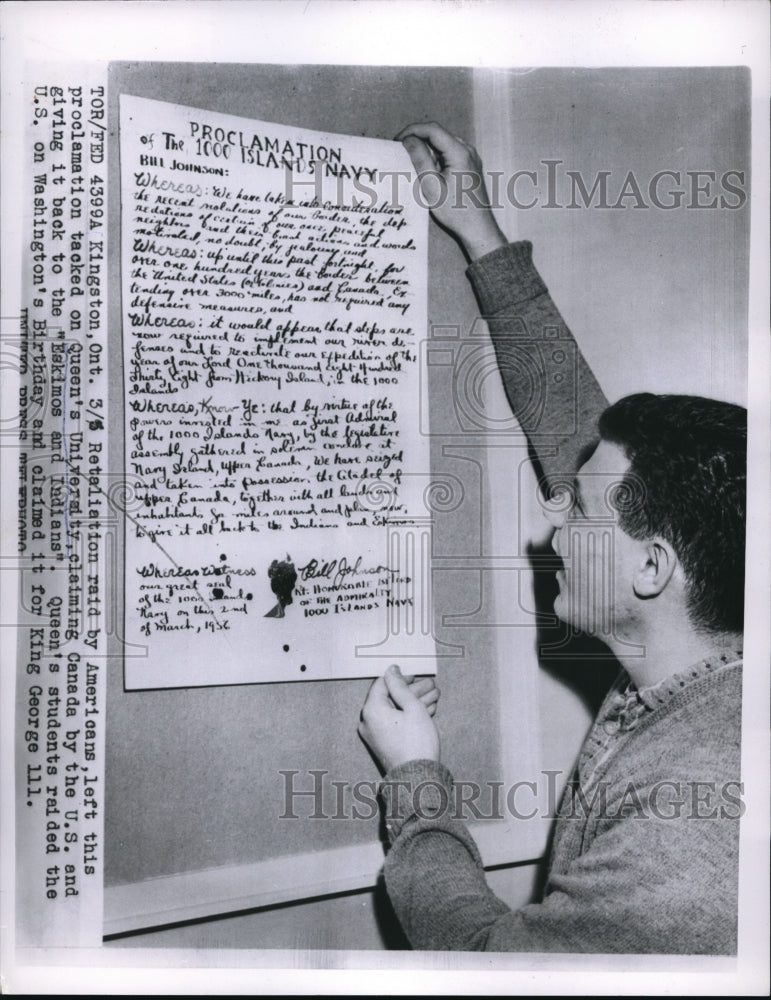 PROCLAMATION
of The 1000 ISLANDS NAVY
BILL JOHNSON:
Whereas: We have taken into consideration
the recent violations of our Border, the dep
redations of certain of our once peaceful
neighbors and their brash actions and words
motivated, no doubt, by jealousy and
Whereas: up until this past fortnight, for
over one hundred years the border between
the United States (or Colonies) and Canada, Ex-
tending over 3000 miles, has not required any
defensive measures, and
Whereas: it would appear that steps are
now required to implement our river de-
fenses and to reactivate our expedition of the
year of our Lord One thousand Eight Hundred
Thirty Eight from Hickory Island, in the 1000
Islands
Whereas, Know Ye: that by virtue of the
powers invested in me as first Admiral
of the 1000 Islands Navy, by the legislative
assembly gathered in solemn conclave at
Navy Island, Upper Canada, We have seized
and taken into possession the Citadel of
upper Canada, together with all lands and
inhabitants for miles around and plan, now,
to give it all back to the Indians and Eskimos
Whereas Witness
our great seal
of the 1000 Islands
Navy on this 2nd
of March, 1956
Bill Johnson
Rt. HONORABLE LORD
OF THE ADMIRALTY
1000 ISLANDS NAVY
TOR/FED 4399A Kingston, Ont. 3/5 Retaliation raid by Americans, left this
proclamation tacked on Queen's University, claiming Canada by the U.S. and
giving it back to the "Eskimos and Indians". Queen's students raided the
U.S. on Washington's Birthday and claimed it for King George 111.
UNITED PRESS TELEPHOTO
HISTORIC IMAGES
HISTORIC IMAGES